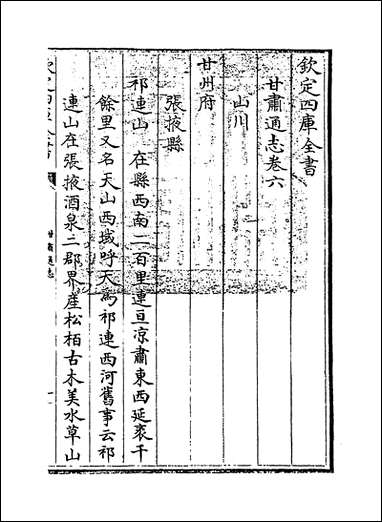 欽定四庫全書
甘肅通志卷六
山川
甘州府
張掖縣
祁連山 在縣西南二百里連亘凉肅東西延袤千
餘里又名天山西域呼天為祁連西河舊事云祁
連山在張掖酒泉二郡界産松栢古木美水草山